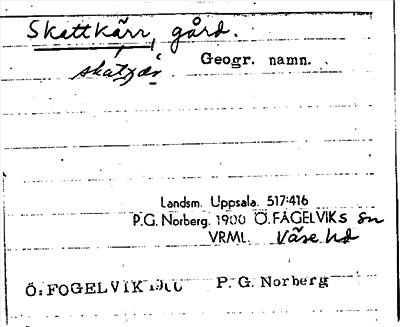 Skattkärr, gård.
Geogr. namn.
Landsm. Uppsala. 517:416
P.G. Norberg. 1900 Ö. FÅGELVIKS Sn
VRML. Väse hd
Ö. FOGELVIK 1900 P. G. Norberg